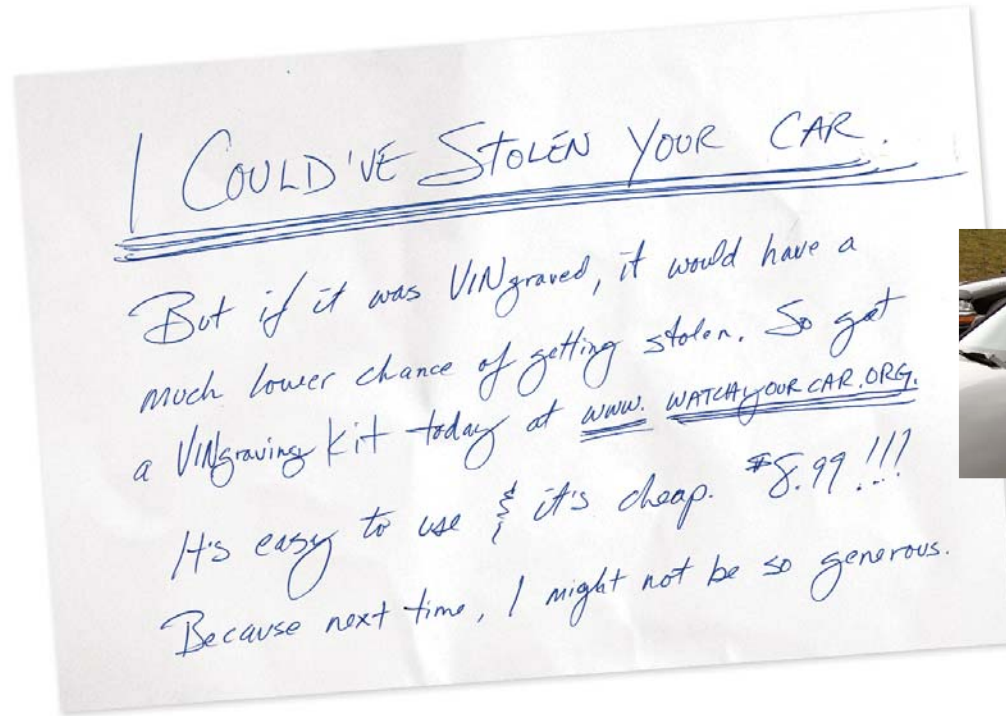 I COULD'VE STOLEN YOUR CAR.
But if it was VINgraved, it would have a
much lower chance of getting stolen. So get
a VINgraving kit today at www. WATCHYOURCAR.ORG.
It's easy to use & it's cheap. $8.99!!!
Because next time, I might not be so generous.